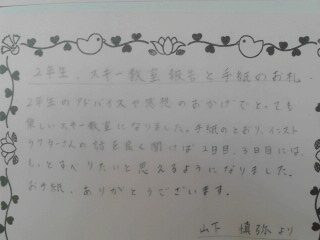 2年生、スキー教室報告と手紙のお礼
2年生のアドバイスや感想のおかげでとっても
楽しいスキー教室になりました。手紙のとおり、インスト
ラクターさんの話を良く聞けば、2日目、3日目には、
もっとすべりたいと思えるようになりました。
お手紙、ありがとうございます。
山下 慎弥より